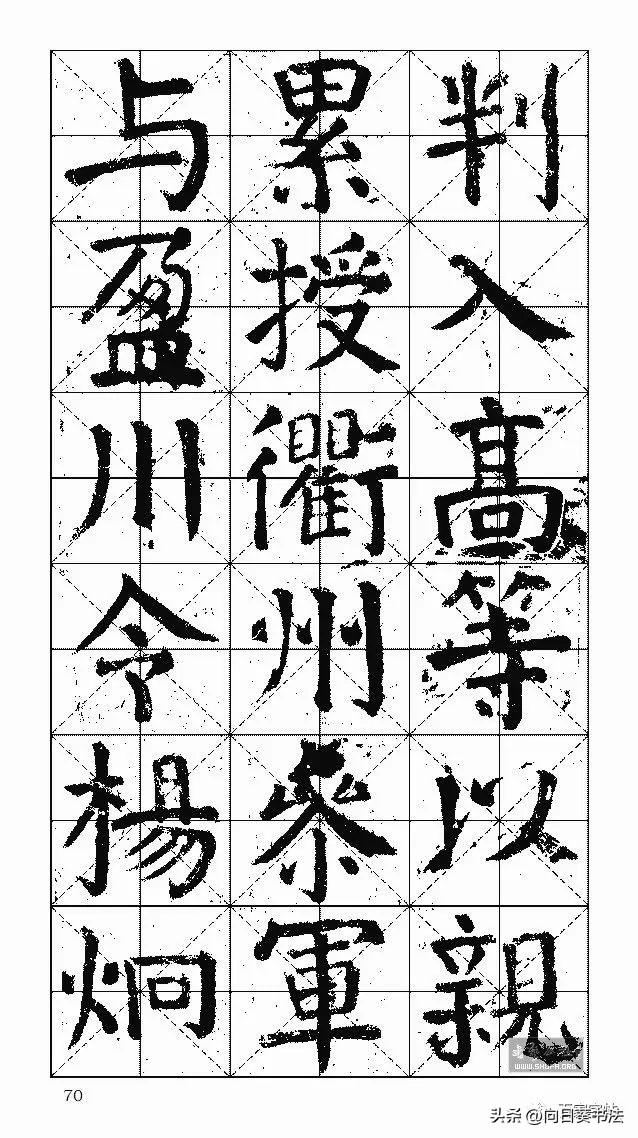 判入高等以親
累授衢州叅軍
与盈川令楊炯
70
WWW.SHUFA.ORG
头条 @向日葵书法